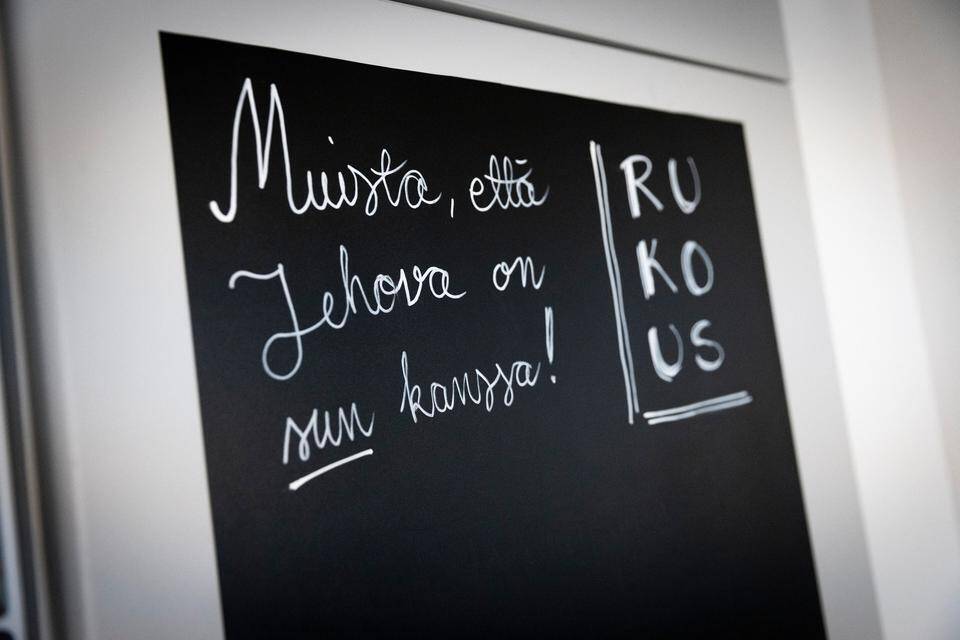 Muista, että
Jehova on
sun kanssa!
RU
KO
US